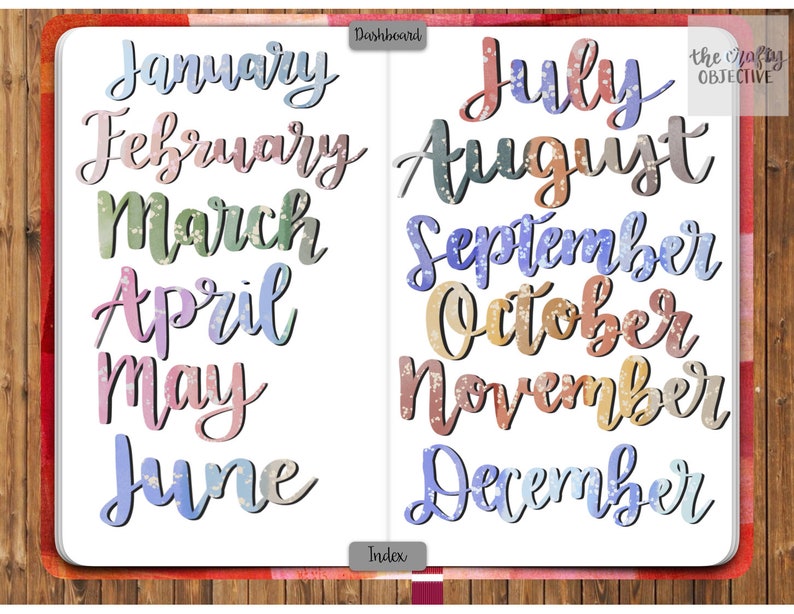 Dashboard
the crafty
OBJECTIVE
January
February
March
April
May
June
July
August
September
October
November
December
Index